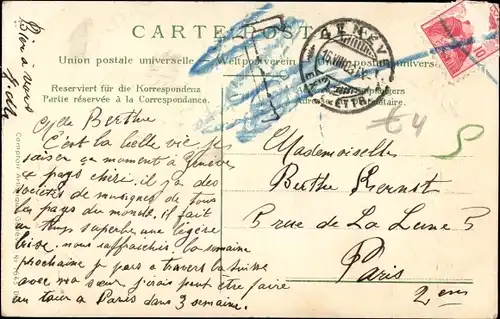 CARTE POSTALE
Union postale universelle Weltpostverein
Reserviert für die Korrespondenz
Partie réservée à la Correspondance.
GENÈVE
10
64
S
Bien à vous
Melle Berthe
C'est la belle vie je
faison en moment à Genève
pays chéri. il y a des
sociétés de musiques de tous
les pays du monde. il fait
un temps superbe une légère
bise, nous raffraichis la semaine
prochaine je pars a travers la Suisse
avec ma sœur j'irais peut être faire
un tour à Paris dans 3 semaine.
Mademoiselle
Berthe
5 rue de La Lune 5
Paris
2em